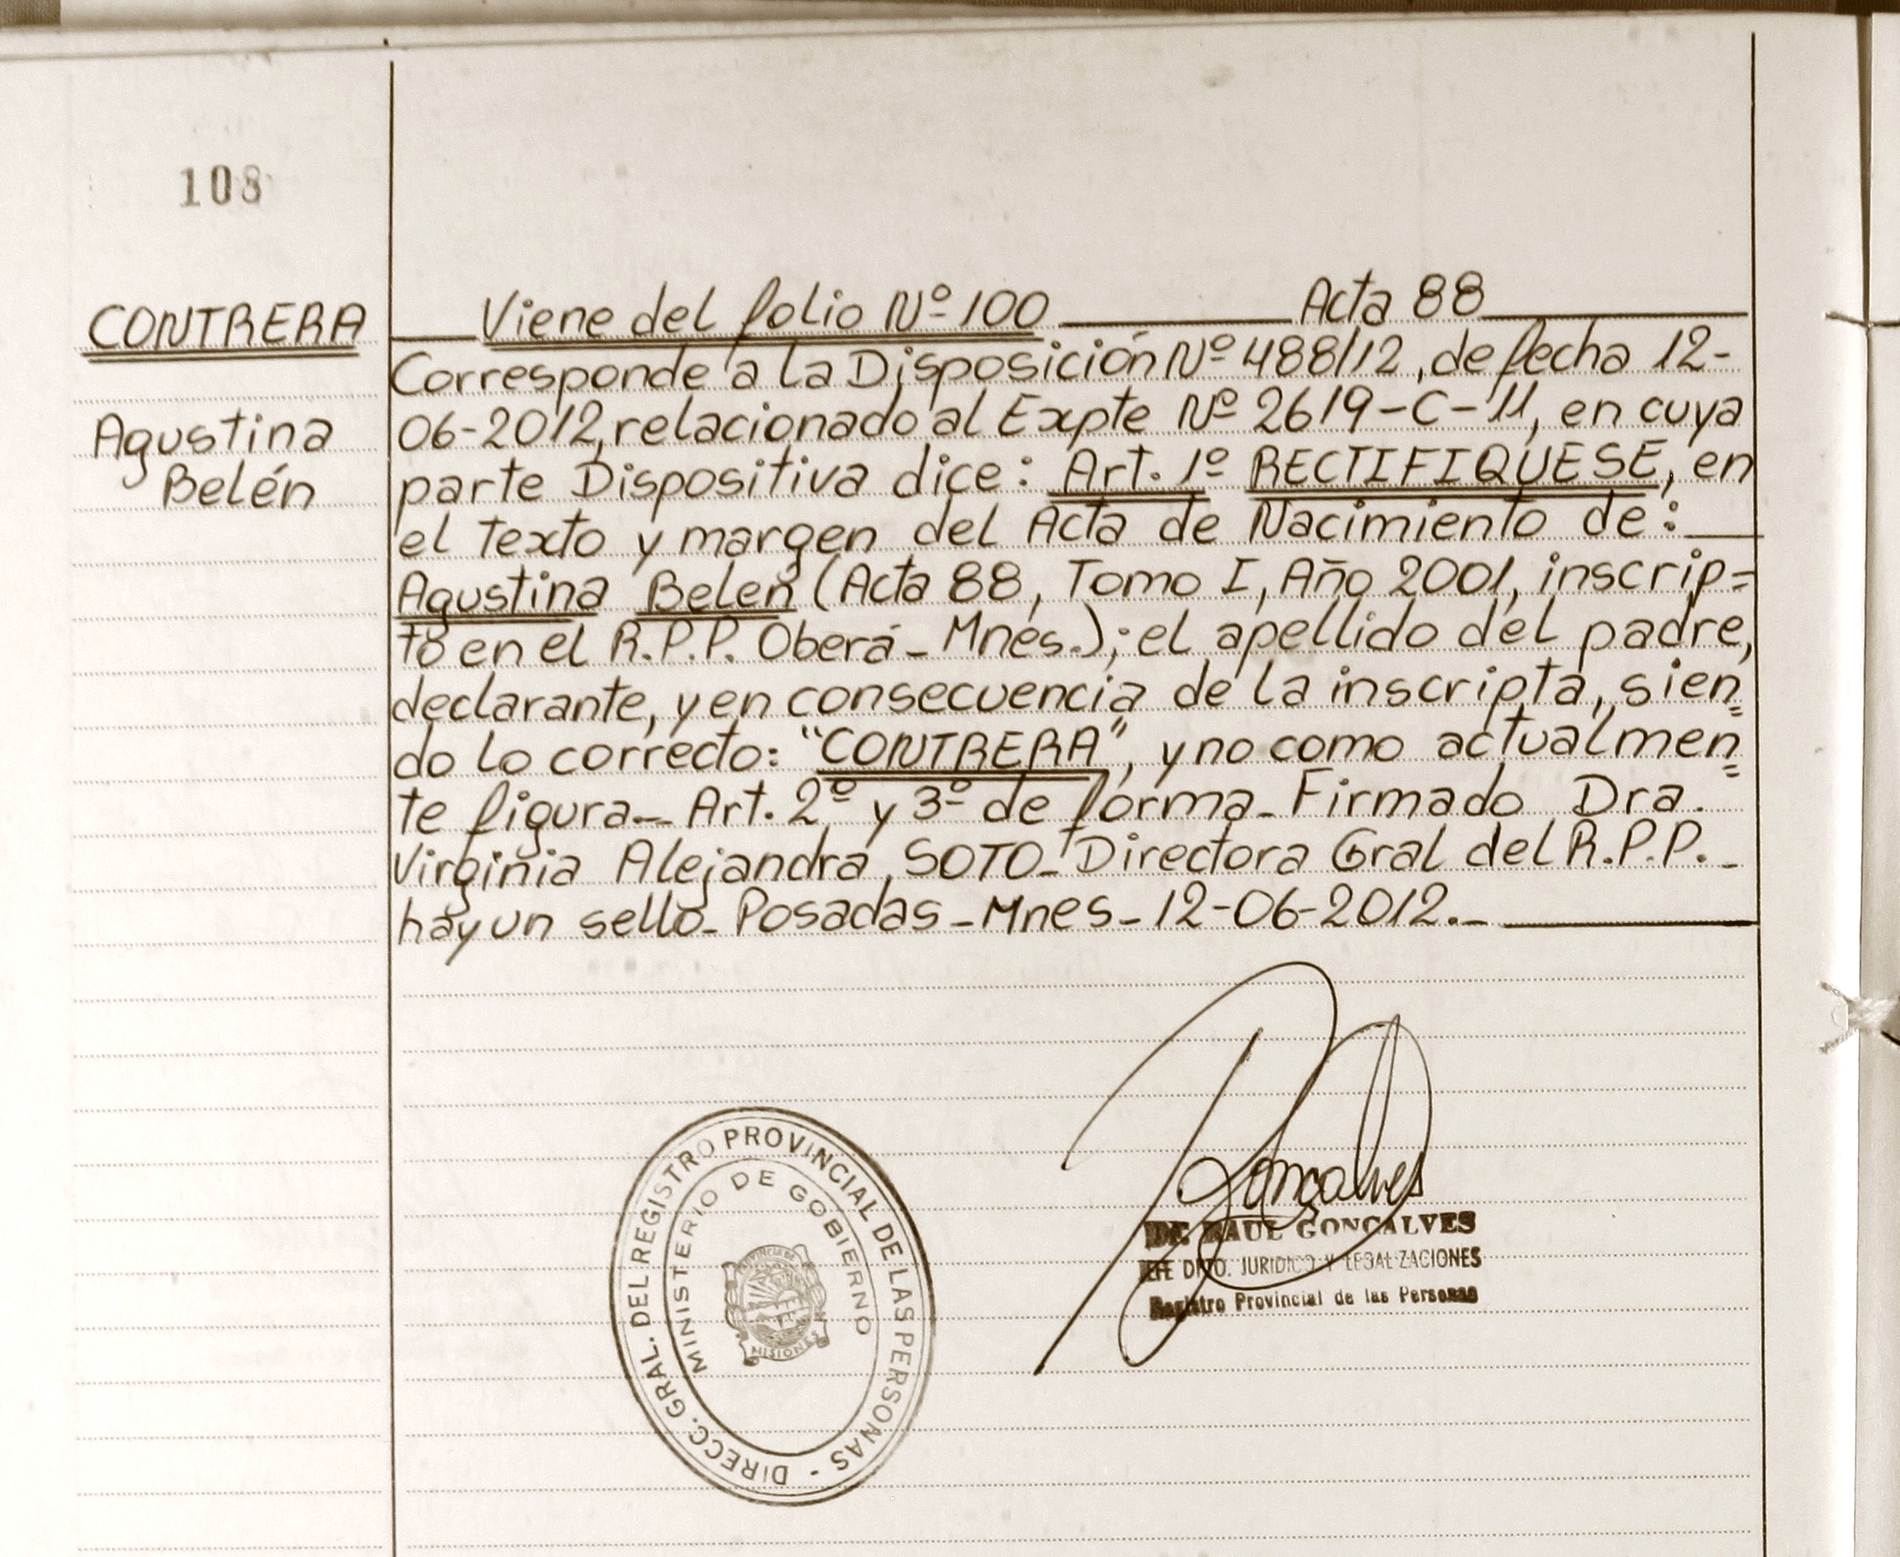 108
CONTRERA
Agustina
Belén
Viene del folio Nº 100 Acta 88
Corresponde a la Disposición Nº 488/12, de fecha 12-
06-2012, relacionado al Expte Nº 2619-C-11, en cuya
parte Dispositiva dice: Art. 1º RECTIFIQUESE, en
el Texto y margen del Acta de Nacimiento de:
Agustina Belen (Acta 88, Tomo I, Año 2001, inscrip=
to en el R.P.P. Oberá - Mnes.); el apellido del padre,
declarante, y en consecuencia de la inscripta, sien=
do lo correcto: "CONTRERA", y no como actualmen=
te figura.- Art. 2º y 3º de forma - Firmado Dra.
Virginia Alejandra SOTO - Directora Gral del R.P.P. -
hay un sello - Posadas - Mnes - 12-06-2012.-
Gonçalves
DR. RAUL GONÇALVES
JEFE DPTO. JURIDICO Y LEGALIZACIONES
Registro Provincial de las Personas
DIRECC. GRAL. DEL REGISTRO PROVINCIAL DE LAS PERSONAS -
MINISTERIO DE GOBIERNO
PROVINCIA DE
MISIONES